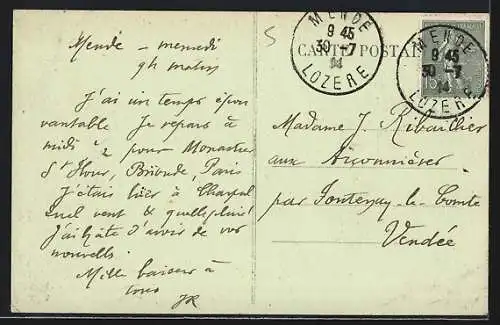 Mende – mercredi
9h matin
J'ai un temps épou
vantable Je repars à
midi ½ pour Monastier
St Flour, Brioude, Paris
J'étais hier à
quel vent & quelle pluie!
J'ai hâte d'avoir de vos
nouvelles.
Mille baisers à
tous
JR
5
CARTE POSTALE
MENDE
9 45
30 -7
14
LOZERE
MENDE
9 45
30 -7
14
LOZERE
15
Madame J. Ribaillier
aux
par Fontenay-le-Comte
Vendée